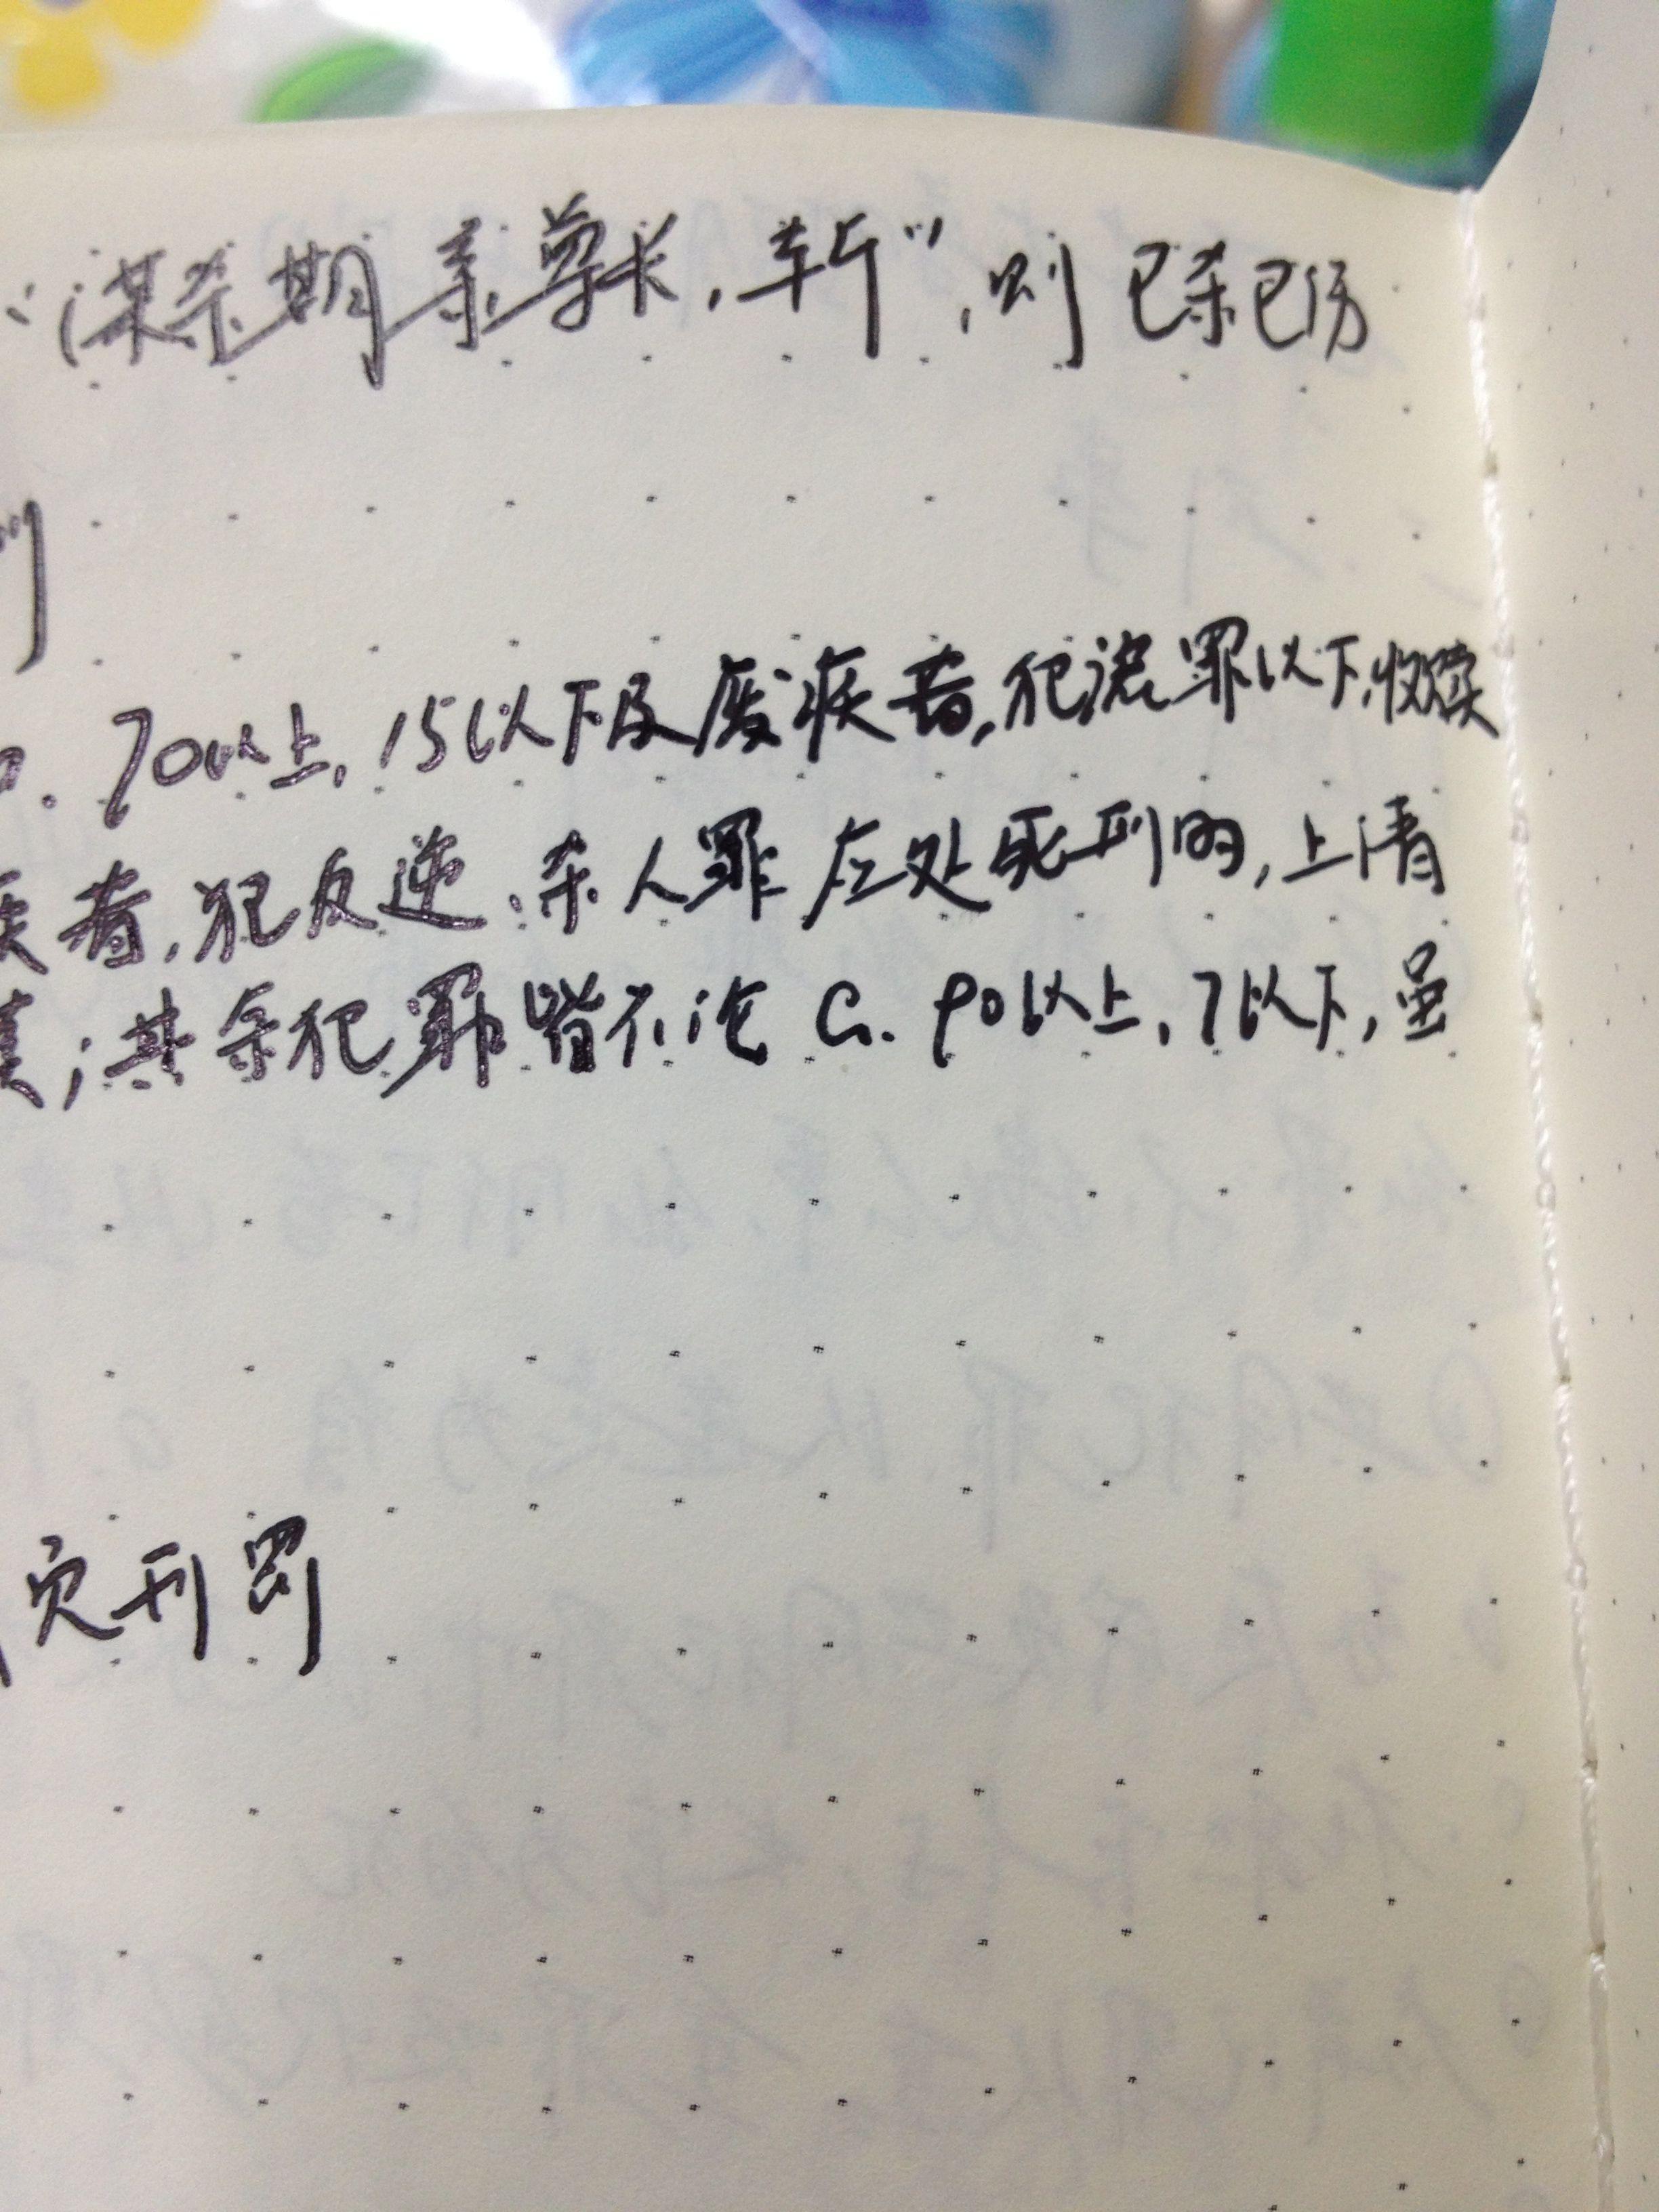 ："谋杀期亲尊长，斩"，则已杀已伤
. 70以上，15以下及废疾者，犯流罪以下，收赎
疾者，犯反逆、杀人罪应处死刑的，上请
；其余犯罪皆不论 C. 90以上，7以下，虽
刑罚